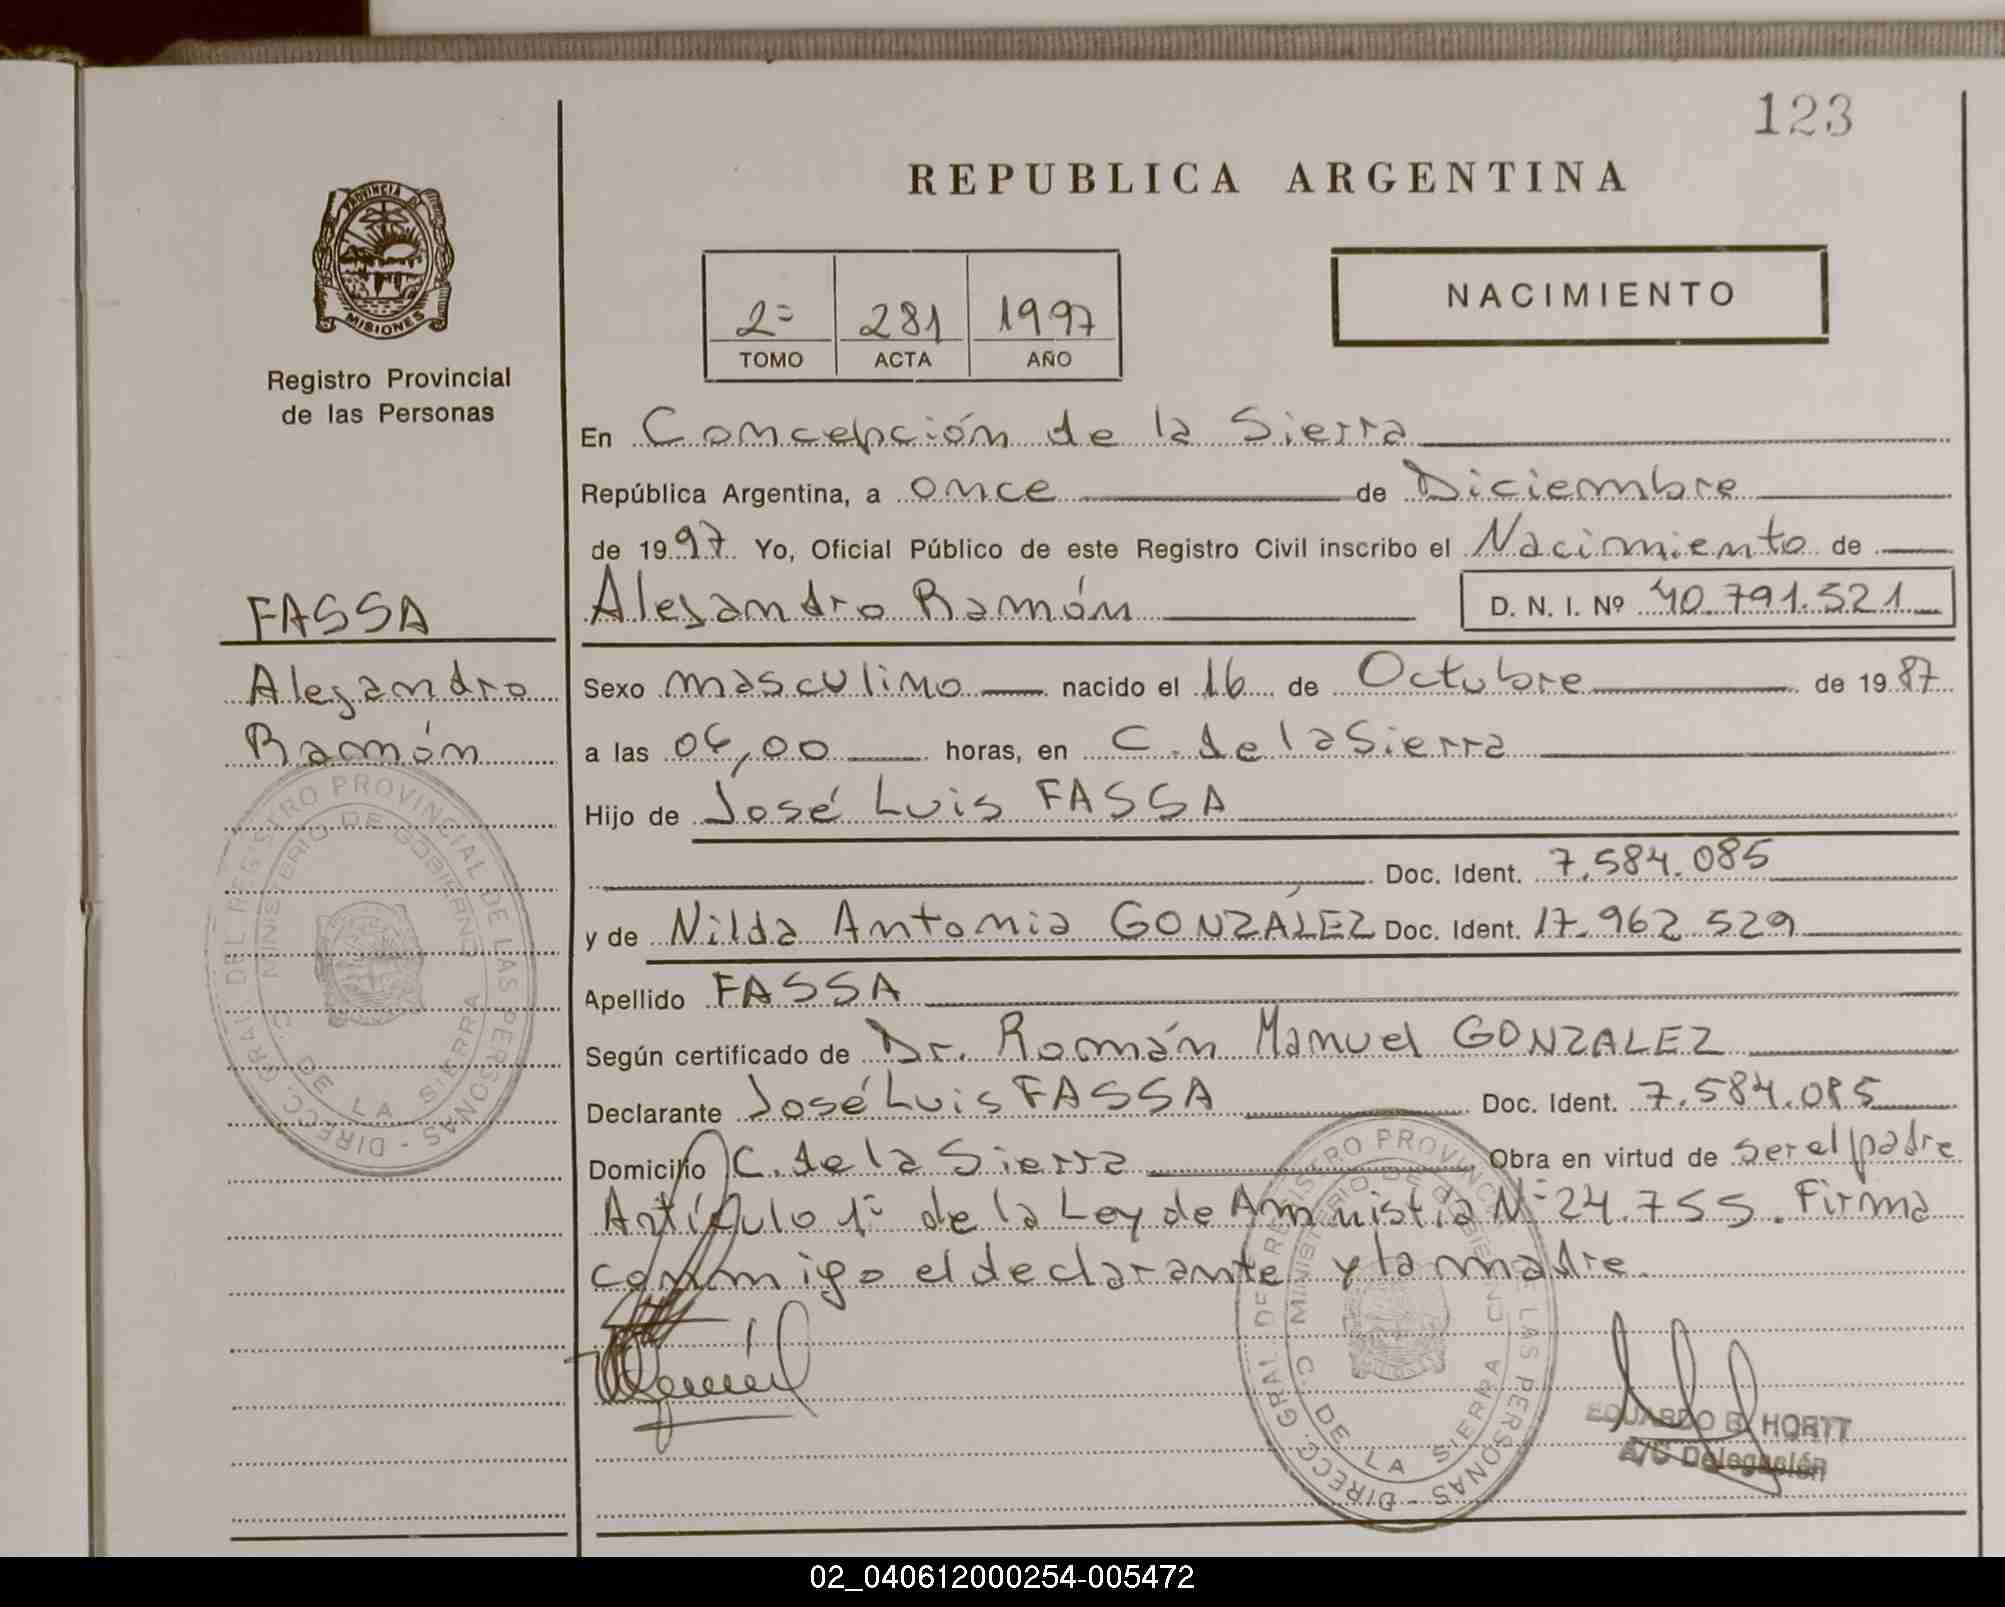 123
REPUBLICA ARGENTINA
PROVINCIA DE
MISIONES
Registro Provincial
de las Personas
2º 281 1997
TOMO ACTA AÑO
NACIMIENTO
En Concepción de la Sierra
República Argentina, a once de Diciembre
de 1997 Yo, Oficial Público de este Registro Civil inscribo el Nacimiento de
Alejandro Ramón D. N. I. Nº 40.791.521
FASSA
Alejandro
Ramón
Sexo masculino nacido el 16 de Octubre de 1987
a las 06,00 horas, en C. de la Sierra
Hijo de José Luis FASSA
Doc. Ident. 7.584.085
y de Nilda Antonia GONZÁLEZ Doc. Ident. 17.962.529
Apellido FASSA
Según certificado de Dr. Román Manuel GONZALEZ
Declarante José Luis FASSA Doc. Ident. 7.584.085
Domicilio C. de la Sierra Obra en virtud de ser el padre
Artículo 1º de la Ley de Amnistia Nº 24.755. Firma
conmigo el declarante y la madre
DIRECC. GRAL. DEL REGISTRO PROVINCIAL DE LAS PERSONAS
MINISTERIO DE GOBIERNO
C. DE LA SIERRA
DIRECC. GRAL. DEL REGISTRO PROVINCIAL DE LAS PERSONAS
MINISTERIO DE GOBIERNO
C. DE LA SIERRA
EDUARDO R. HORTT
A/C Delegación
02_040612000254-005472